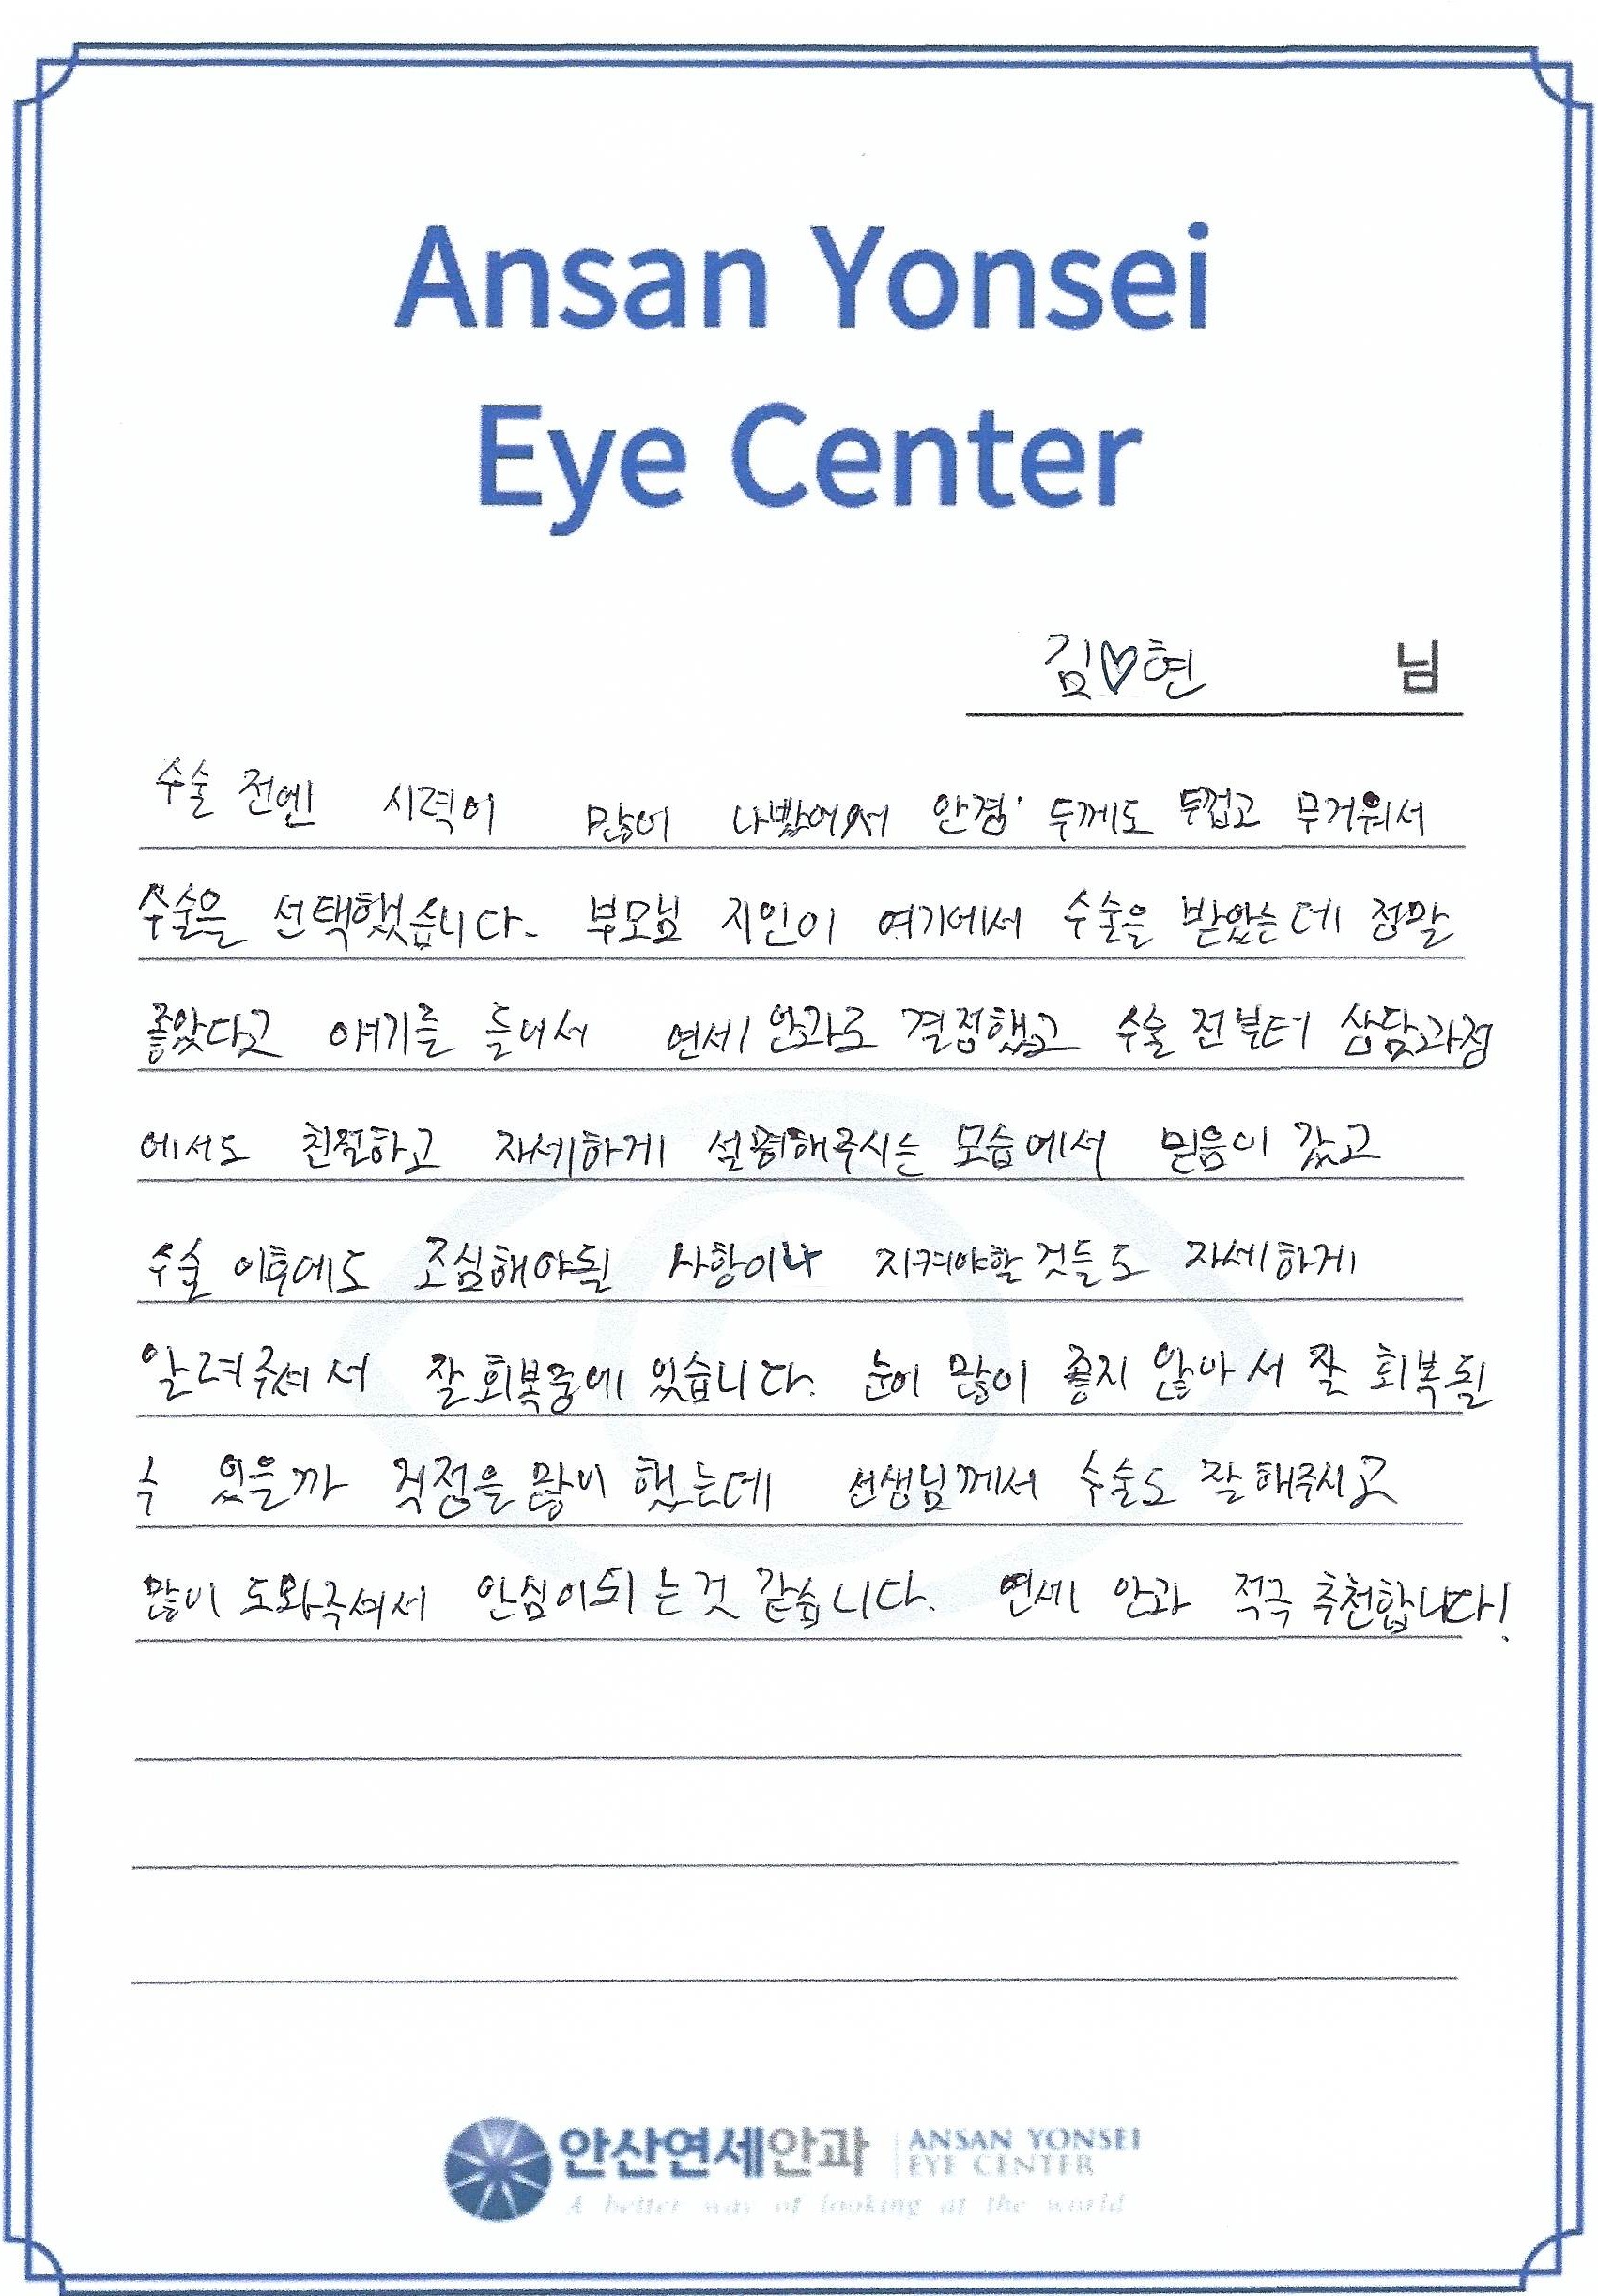 Ansan Yonsei
Eye Center
김♡현 님
수술 전엔 시력이 많이 나빴어서 안경 두께도 두껍고 무거워서
수술을 선택했습니다. 부모님 지인이 여기에서 수술을 받았는데 정말
좋았다고 얘기를 들어서 연세안과로 결정했고 수술 전부터 상담과정
에서도 친절하고 자세하게 설명해주시는 모습에서 믿음이 갔고
수술 이후에도 조심해야될 사항이나 지켜야할 것들도 자세하게
알려주셔서 잘 회복중에 있습니다. 눈이 많이 좋지 않아서 잘 회복될
수 있을까 걱정을 많이 했는데 선생님께서 수술도 잘해주시고
많이 도와주셔서 안심이되는것 같습니다. 연세 안과 적극 추천합니다!
안산연세안과 ANSAN YONSEI
EYE CENTER
A better way of looking at the world